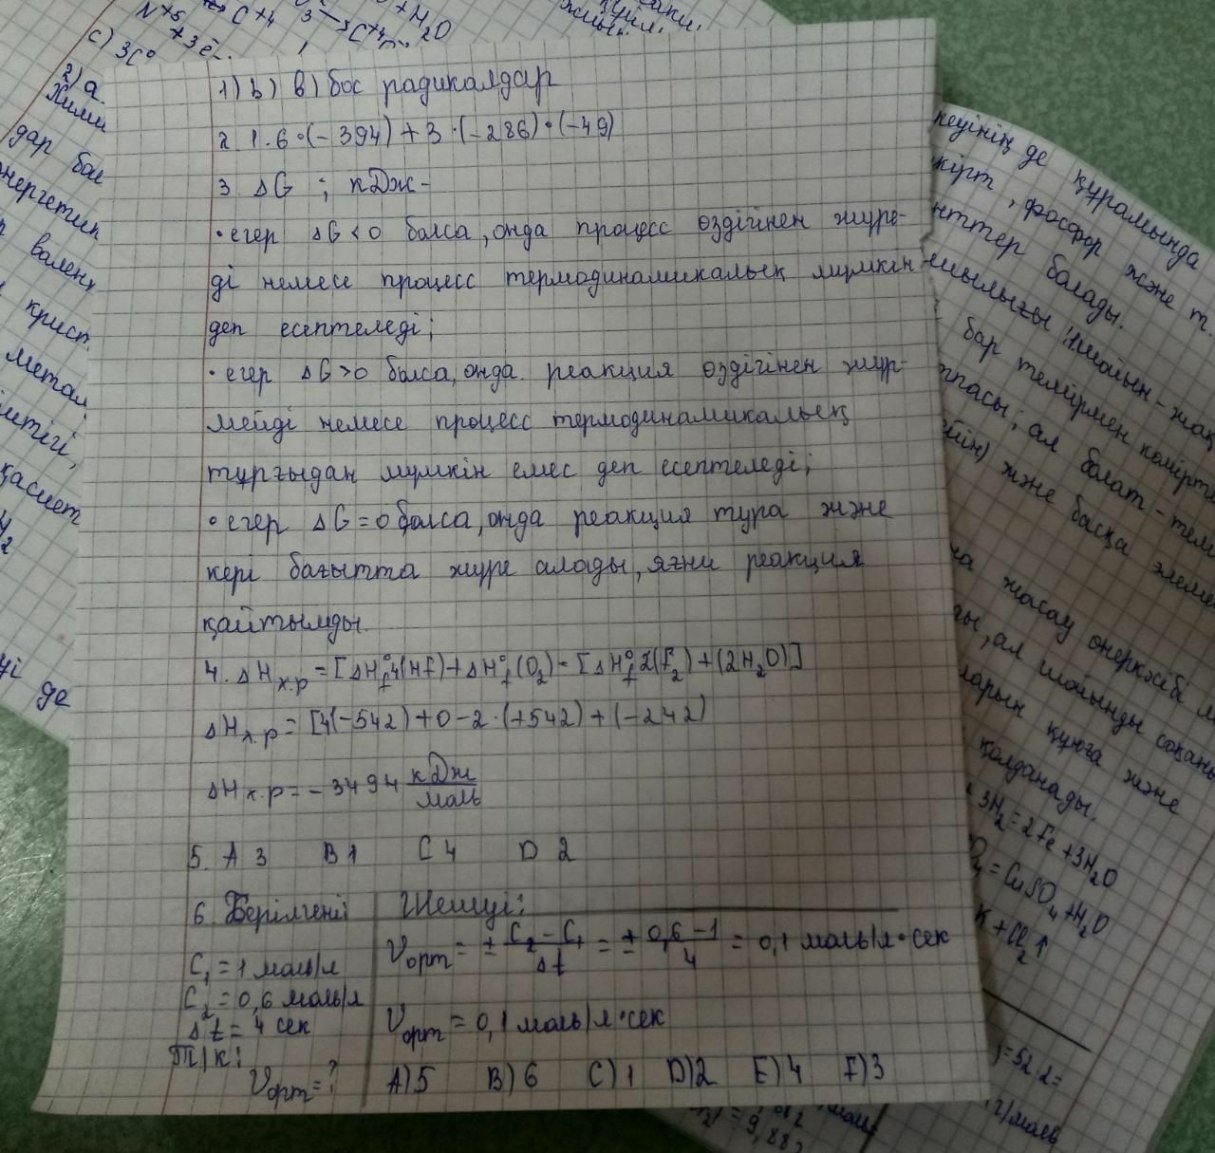 1) b) в) бос радикалдар
2 1. 6·(-394)+3·(-286)·(-49)
3 ΔG ; кДж-
·егер ΔG<0 болса, онда процесс өздігінен жүре-
ді немесе процесс термодинамикалық мүмкін
деп есептеледі;
·егер ΔG>0 болса, онда реакция өздігінен жүр-
мейді немесе процесс термодинамикалық
тұрғыдан мүмкін емес деп есептеледі;
·егер ΔG=0 болса, онда реакция тура және
кері бағытта жүре алады, яғни реакция
қайтымды.
4. ΔHх.р=[ΔH°f4(Hf)+ΔH°f(O2)-[ΔH°f2(f2)+(2H2O)]
ΔHх.р=[4(-542)+0-2·(+542)+(-242)
ΔHх.р=-3494 кДж/моль
5. A 3 B 1 C 4 D 2
6. Берілгені Шешуі:
C1=1 моль/л
C2=0,6 моль/л
Δt=4 сек
Т/к:
Vорт=?
Vорт=±C2-C1/Δt=±0,6-1/4=0,1 моль/л·сек
Vорт=0,1 моль/л·сек
A)5 B)6 C)1 D)2 E)4 F)3
c) 3C°
2) a
дар
вален
крист.
метал
қасиет
де
құрамында
, фосфор және т.
балады.
бар темірмен көмірт
; ал болат - тем
және басқа элеме
жасау өнеркәсібі
, ал шойынды
құюға және
қолданады.
3H2=2Fe+3H2O
=CuSO4+H2O
+Cl2↑
=52·2=
г/моль